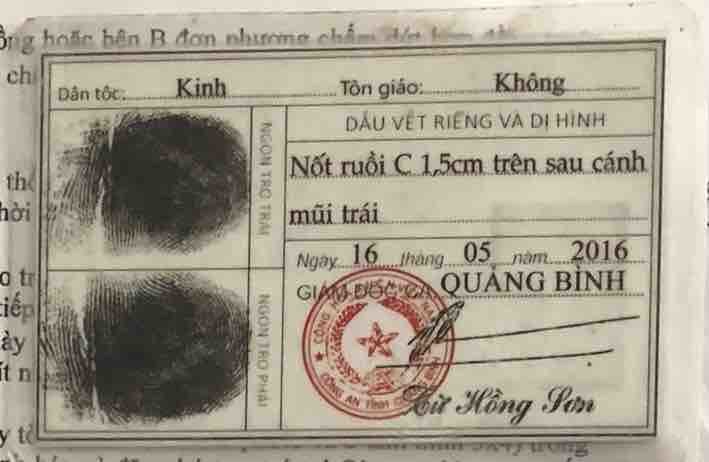 ồng hoặc bên B đơn phương chấm dứt hợp đồng
Dân tộc: Kinh Tôn giáo: Không
DẤU VẾT RIÊNG VÀ DỊ HÌNH
NGÓN TRỎ TRÁI
Nốt ruồi C 1,5cm trên sau cánh
mũi trái
Ngày 16 tháng 05 năm 2016
GIÁM ĐỐC CA QUẢNG BÌNH
NGÓN TRỎ PHẢI
CÔNG AN TỈNH
Từ Hồng Sơn